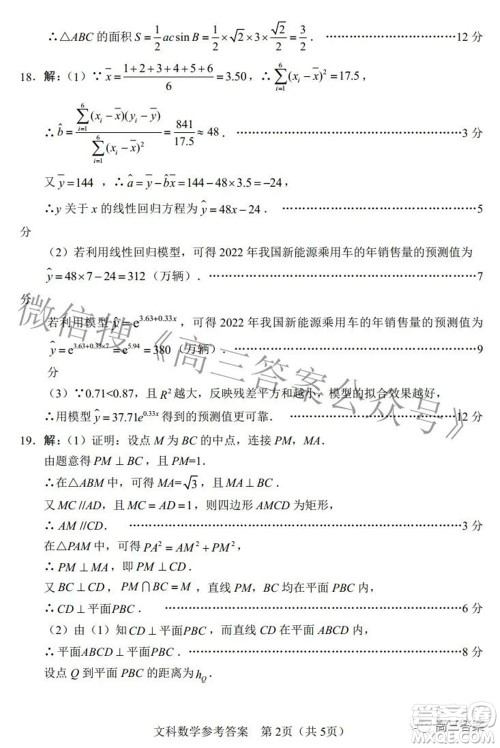 ∴△ABC 的面积 S = 1/2 ac sin B = 1/2 × √2 × 3 × √2/2 = 3/2 . ……………………………12 分
18. 解:(1)∵ x̄ = (1+2+3+4+5+6)/6 = 3.50 , ∴ ∑_{i=1}^{6} (x_i − x̄)² = 17.5 ,
∴ b̂ = ∑_{i=1}^{6} (x_i − x̄)(y_i − ȳ) / ∑_{i=1}^{6} (x_i − x̄)² = 841/17.5 ≈ 48 . ……………………………3 分
又 ȳ = 144 , ∴ â = ȳ − b̂x̄ = 144 − 48×3.5 = −24 ,
∴y 关于 x 的线性回归方程为 ŷ = 48x − 24 . ……………………………5
分
(2)若利用线性回归模型,可得 2022 年我国新能源乘用车的年销售量的预测值为
ŷ = 48×7 − 24 = 312 (万辆). ……………………………7
分
若利用模型 ŷ = e^{3.63+0.33x} ,可得 2022 年我国新能源乘用车的年销售量的预测值为
ŷ = e^{3.63+0.33×7} = e^{5.94} = 380 (万辆). ……………………………9
分
(3)∵ 0.71<0.87,且 R² 越大,反映残差平方和越小,模型的拟合效果越好,
∴用模型 ŷ = 37.71e^{0.33x} 得到的预测值更可靠. ……………………………12 分
19. 解:(1)证明:设点 M 为 BC 的中点,连接 PM,MA.
由题意得 PM ⊥ BC ,且 PM=1.
∴在△ABM 中,可得 MA=√3 ,且 MA ⊥ BC ,
又 MC //AD ,且 MC = AD = 1 ,则四边形 AMCD 为矩形,
∴ AM //CD . ……………………………3 分
在△PAM 中,可得 PA² = AM² + PM² ,
∴ PM ⊥ MA ,即 PM ⊥ CD .
又∵ CD ⊥ BC , PM⋂BC = M ,直线 PM、BC 在平面 PBC 内,
∴ CD ⊥ 平面PBC . ……………………………6 分
(2)由(1)知CD ⊥ 平面PBC ,而直线 CD 在平面 ABCD 内,
∴ 平面ABCD ⊥ 平面PBC . ……………………………8 分
设点 Q 到平面 PBC 的距离为 h_Q .
文科数学参考答案 第 2页(共 5页)
微信搜《高三答案公众号》
高三答案